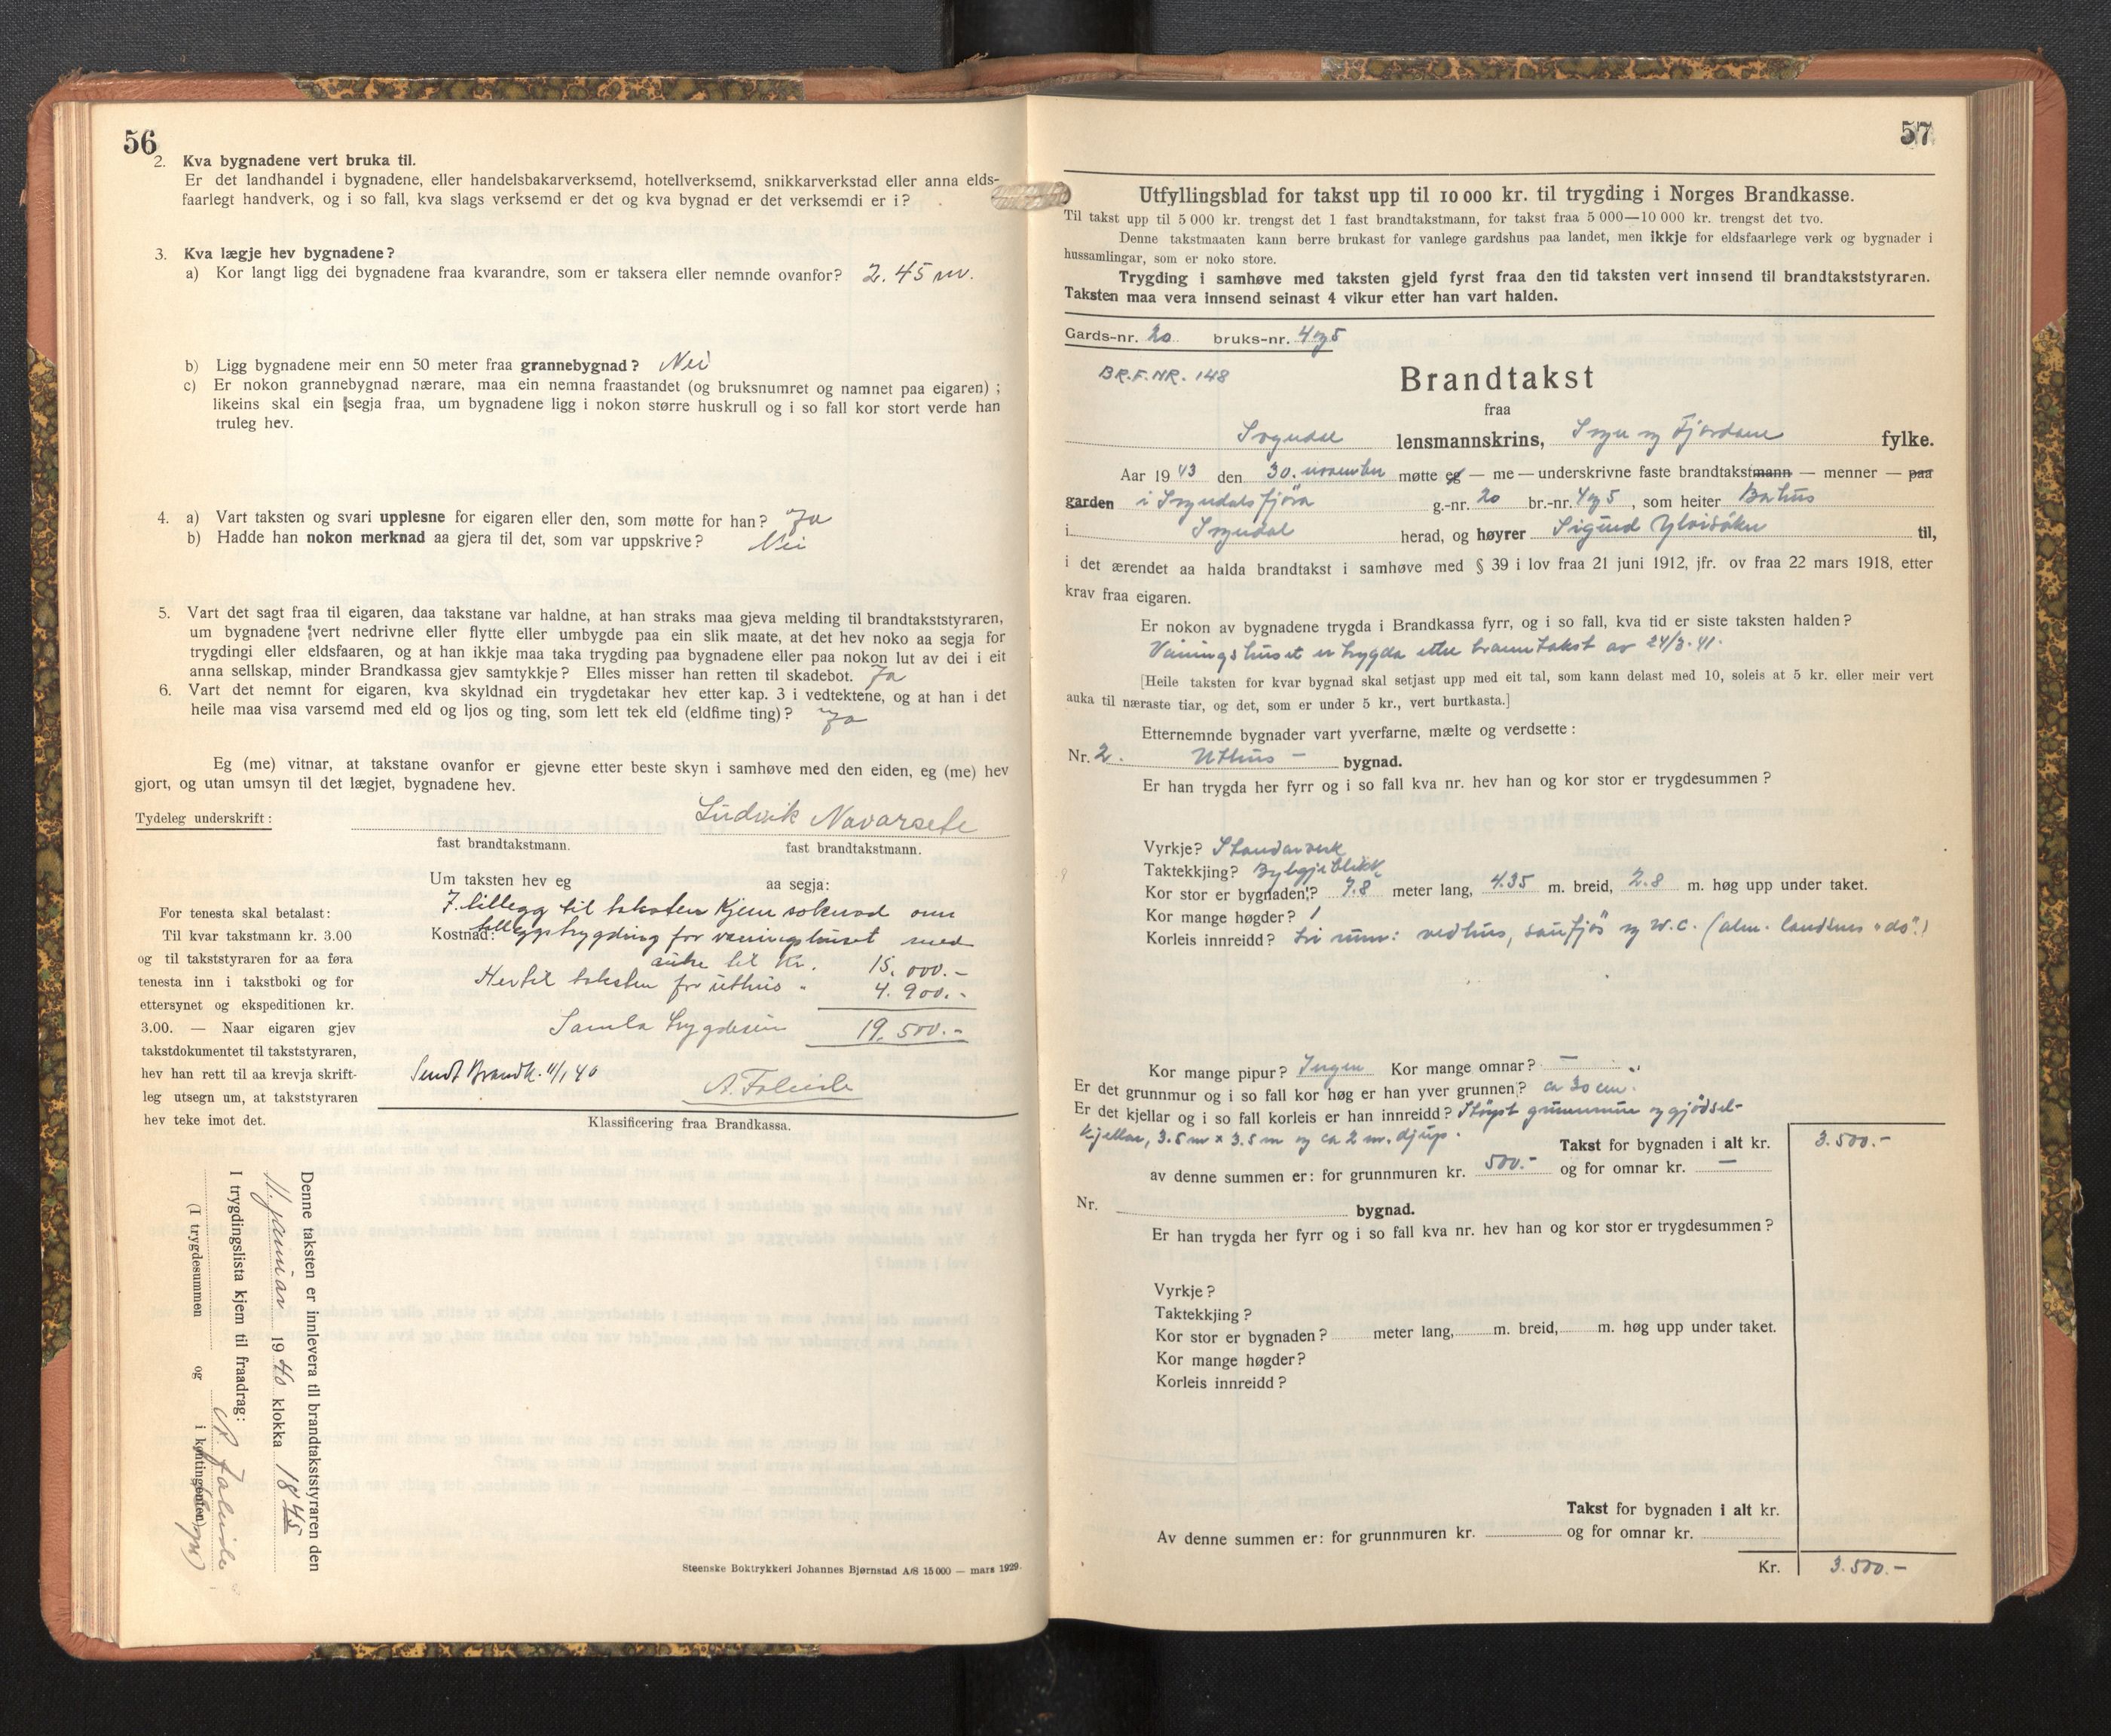 56
2. Kva bygnadene vert bruka til.
Er det landhandel i bygnadene, eller handelsbakarverksemd, hotellverksemd, snikkarverkstad eller anna elds-
faarlegt handverk, og i so fall, kva slags verksemd er det og kva bygnad er det verksemdi er i?
3. Kva lægje hev bygnadene?
a) Kor langt ligg dei bygnadene fraa kvarandre, som er taksera eller nemnde ovanfor? 2.45 m.
b) Ligg bygnadene meir enn 50 meter fraa grannebygnad? Nei
c) Er nokon grannebygnad nærare, maa ein nemna fraastandet (og bruksnumret og namnet paa eigaren);
likeins skal ein segja fraa, um bygnadene ligg i nokon større huskrull og i so fall kor stort verde han
truleg hev.
4. a) Vart taksten og svari upplesne for eigaren eller den, som møtte for han? Ja
b) Hadde han nokon merknad aa gjera til det, som var uppskrive? Nei
5. Vart det sagt fraa til eigaren, daa takstane var haldne, at han straks maa gjeva melding til brandtakststyraren,
um bygnadene vert nedrivne eller flytte eller umbygde paa ein slik maate, at det hev noko aa segja for
trygdingi eller eldsfaaren, og at han ikkje maa taka trygding paa bygnadene eller paa nokon lut av dei i eit
anna sellskap, minder Brandkassa gjev samtykkje? Elles misser han retten til skadebot. Ja
6. Vart det nemnt for eigaren, kva skyldnad ein trygdetakar hev etter kap. 3 i vedtektene, og at han i det
heile maa visa varsemd med eld og ljos og ting, som lett tek eld (eldfime ting)? Ja
Eg (me) vitnar, at takstane ovanfor er gjevne etter beste skyn i samhøve med den eiden, eg (me) hev
gjort, og utan umsyn til det lægjet, bygnadene hev.
Tydeleg underskrift: Ludvik Navarsete
fast brandtakstmann. fast brandtakstmann.
Um taksten hev eg aa segja:
I tillegg til taksten kjem søknad om
Kostnad: tilleggstrygding for våningshuset med
auke til Kr. 15.000.-
Hertil taksten for uthus " 4.900.-
Samla trygdesum 19.500.-
Sendt Brandk. 11/1 40
A. Faleide
Klassificering fraa Brandkassa.
For tenesta skal betalast:
Til kvar takstmann kr. 3.00
og til takststyraren for aa føra
tenesta inn i takstboki og for
ettersynet og ekspeditionen kr.
3.00. — Naar eigaren gjev
takstdokumentet til takststyraren,
hev han rett til aa krevja skrift-
leg utsegn um, at takststyraren
hev teke imot det.
Denne taksten er innlevera til brandtakststyraren den
11. januar 1940 klokka 18 45
I trygdingslista kjem til fraadrag:
A. Faleide
(I trygdesummen og i kontingenten)
Steenske Boktrykkeri Johannes Bjørnstad A/S 15 000 — mars 1929.
57
Utfyllingsblad for takst upp til 10 000 kr. til trygding i Norges Brandkasse.
Til takst upp til 5 000 kr. trengst det 1 fast brandtakstmann, for takst fraa 5 000—10 000 kr. trengst det tvo.
Denne takstmaaten kann berre brukast for vanlege gardshus paa landet, men ikkje for eldsfaarlege verk og bygnader i
hussamlingar, som er noko store.
Trygding i samhøve med taksten gjeld fyrst fraa den tid taksten vert innsend til brandtakststyraren.
Taksten maa vera innsend seinast 4 vikur etter han vart halden.
Gards-nr. 20 bruks-nr. 4 og 5
BR.F.NR. 148
Brandtakst
fraa
Sogndal lensmannskrins, Sogn og Fjordane fylke.
Aar 1943 den 30. november møtte eg — me — underskrivne faste brandtakstmann — menner — paa
garden i Sogndalsfjøra g.-nr. 20 br.-nr. 4 og 5, som heiter Bahus
i Sogndal herad, og høyrer Sigurd Ylvisåker til,
i det ærendet aa halda brandtakst i samhøve med § 39 i lov fraa 21 juni 1912, jfr. ov fraa 22 mars 1918, etter
krav fraa eigaren.
Er nokon av bygnadene trygda i Brandkassa fyrr, og i so fall, kva tid er siste taksten halden?
Våningshuset er trygda etter branntakst av 24/3-41.
[Heile taksten for kvar bygnad skal setjast upp med eit tal, som kann delast med 10, soleis at 5 kr. eller meir vert
auka til næraste tiar, og det, som er under 5 kr., vert burtkasta.]
Etternemnde bygnader vart yverfarne, mælte og verdsette:
Nr. 2. Uthus — bygnad.
Er han trygda her fyrr og i so fall kva nr. hev han og kor stor er trygdesummen?
Vyrkje? Standarverk
Taktekkjing? Bylgjeblikk
Kor stor er bygnaden? 7.8 meter lang, 4.35 m. breid, 2.8 m. høg upp under taket.
Kor mange høgder? 1
Korleis innreidd? Tri rum: vedhus, saufjøs og W.C. (alm. landsens "do")
Kor mange pipur? Ingen Kor mange omnar? —
Er det grunnmur og i so fall kor høg er han yver grunnen? ca 30 cm.
Er det kjellar og i so fall korleis er han innreidd? Støypt grunnmur og gjødsel-
kjellar, 3.5 m x 3.5 m og ca 2 m. djup.
Takst for bygnaden i alt kr. 3.500.-
av denne summen er: for grunnmuren kr. 500.- og for omnar kr. —
Nr. bygnad.
Er han trygda her fyrr og i so fall kva nr. hev han og kor stor er trygdesummen?
Vyrkje?
Taktekkjing?
Kor stor er bygnaden? meter lang, m. breid, m. høg upp under taket.
Kor mange høgder?
Korleis innreidd?
Takst for bygnaden i alt kr.
Av denne summen er: for grunnmuren kr. og for omnar kr.
Kr. 3.500.-